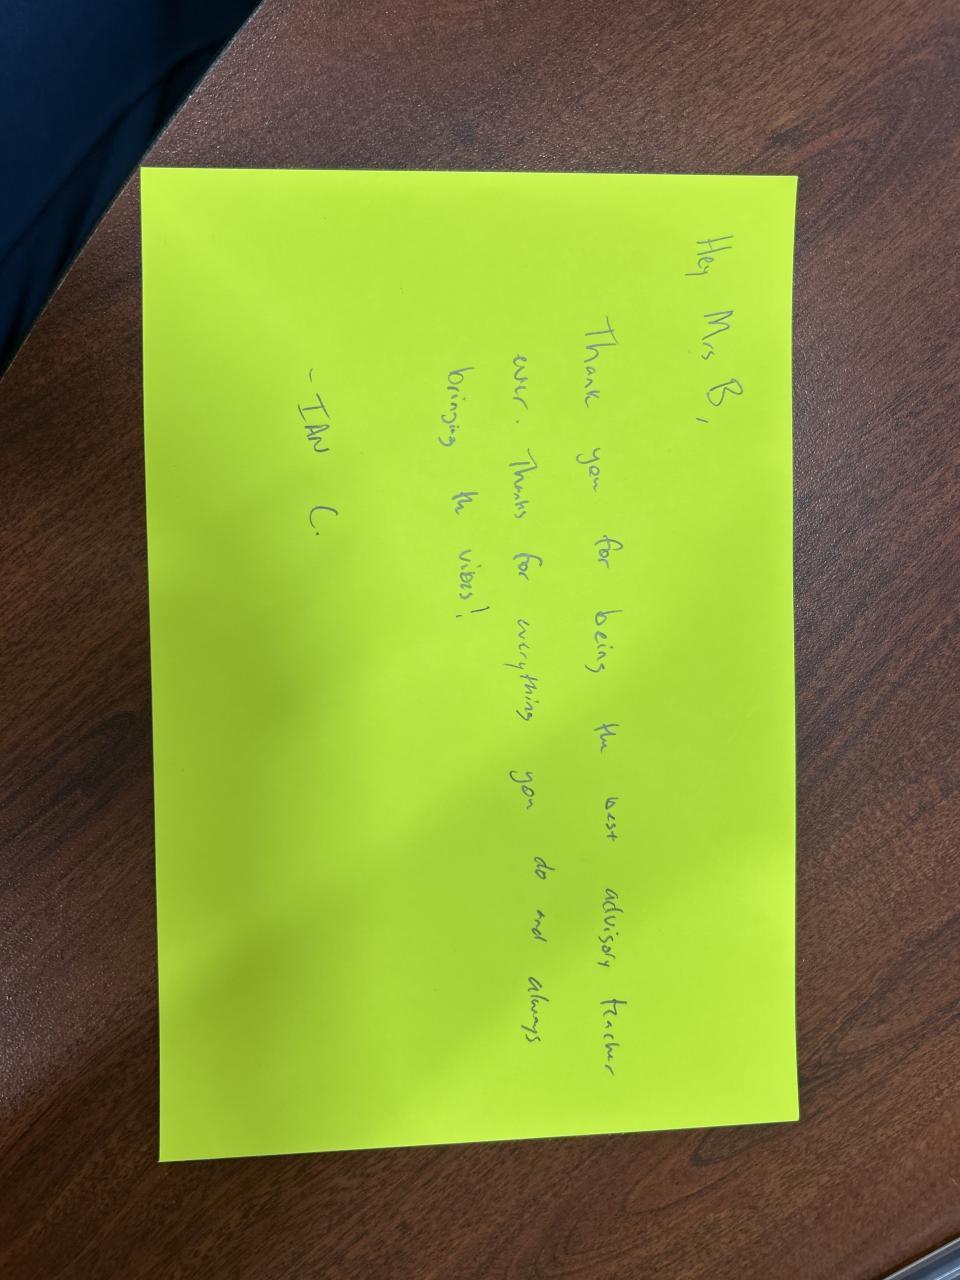 Hey Mrs B,
Thank you for being the best advisory teacher
ever. Thanks for everything you do and always
bringing the vibes!
- IAN C.